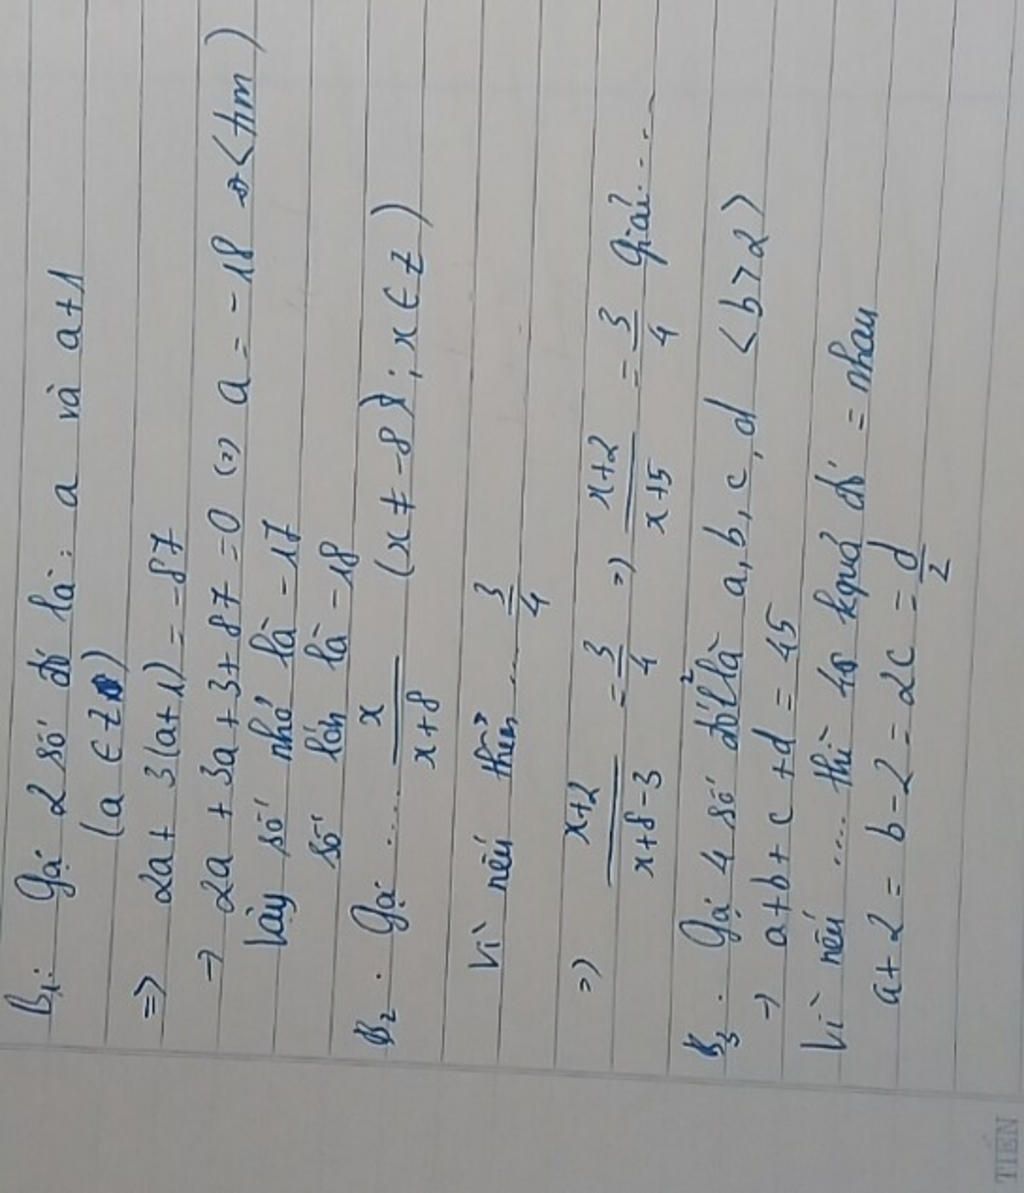 B1: Gọi 2 số đó là: a và a+1
(a ∈ Z)
=> 2a + 3(a+1) = -87
→ 2a + 3a + 3 + 87 = 0 (=) a = -18 <tm)
Vậy số nhỏ là -17
số lớn là -18
B2. Gọi .... x/(x+8) (x ≠ -8); x ∈ Z)
Vì nếu thêm .... 3/4
=) (x+2)/(x+8-3) = 3/4 =) (x+2)/(x+5) = 3/4 Giải....
B3. Gọi 4 số đó là a, b, c, d <b>2>
→ a+b+c+d = 45
Vì nếu .... thì 4 kquả đó = nhau
a+2 = b-2 = 2c = d/2
TIẾN